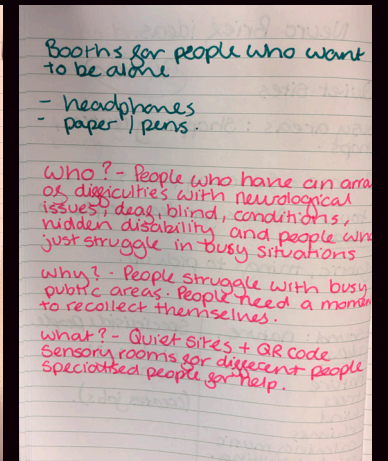 Booths for people who want
to be alone
- headphones
- paper / pens.
Who? - People who have an arra
of difficulties with neurological
issues, deaf, blind, conditions,
hidden disability and people who
just struggle in busy situations
why? - People struggle with busy
public areas. People need a momen
to recollect themselves.
what? - Quiet sites + QR code
Sensory rooms for different people
specialised people for help.